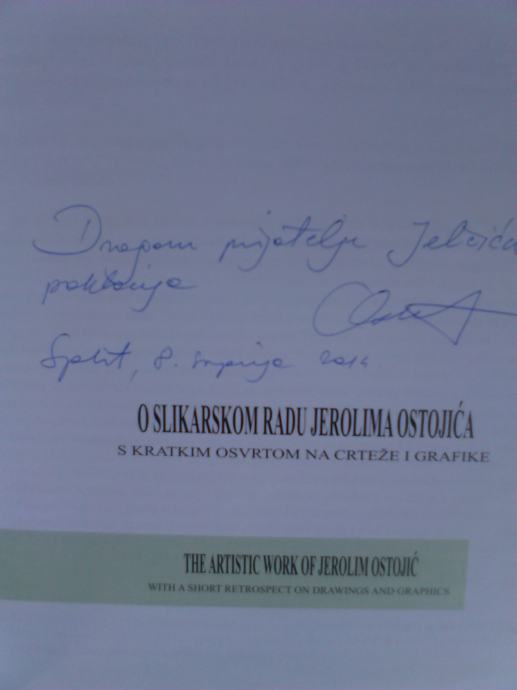 Dragom prijatelju Jelčiću
poklanja
Split, 8. srpnja 2014.
O SLIKARSKOM RADU JEROLIMA OSTOJIĆA
S KRATKIM OSVRTOM NA CRTEŽE I GRAFIKE
THE ARTISTIC WORK OF JEROLIM OSTOJIĆ
WITH A SHORT RETROSPECT ON DRAWINGS AND GRAPHICS